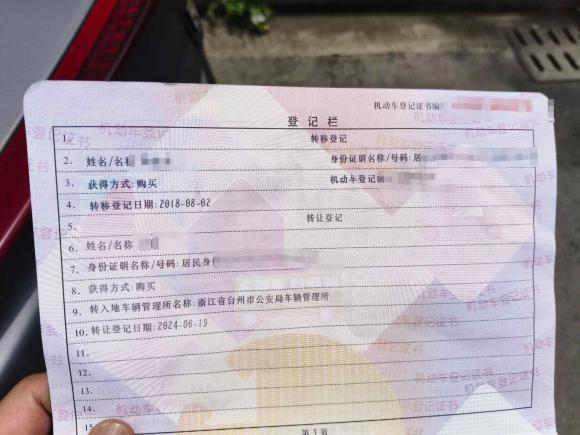 机动车登记证书编
登记栏
1. 转移登记
2. 姓名/名称 身份证明名称/号码:居
3. 获得方式:购买 机动车登记
4. 转移登记日期:2018-08-02
5. 转让登记
6. 姓名/名称
7. 身份证明名称/号码:居民身
8. 获得方式:购买
9. 转入地车辆管理所名称:浙江省台州市公安局车辆管理所
10. 转让登记日期:2024-06-19
11.
12.
13.
14.
15
第1页
机动车登记证书
机动车登记证书
机动车登记证书